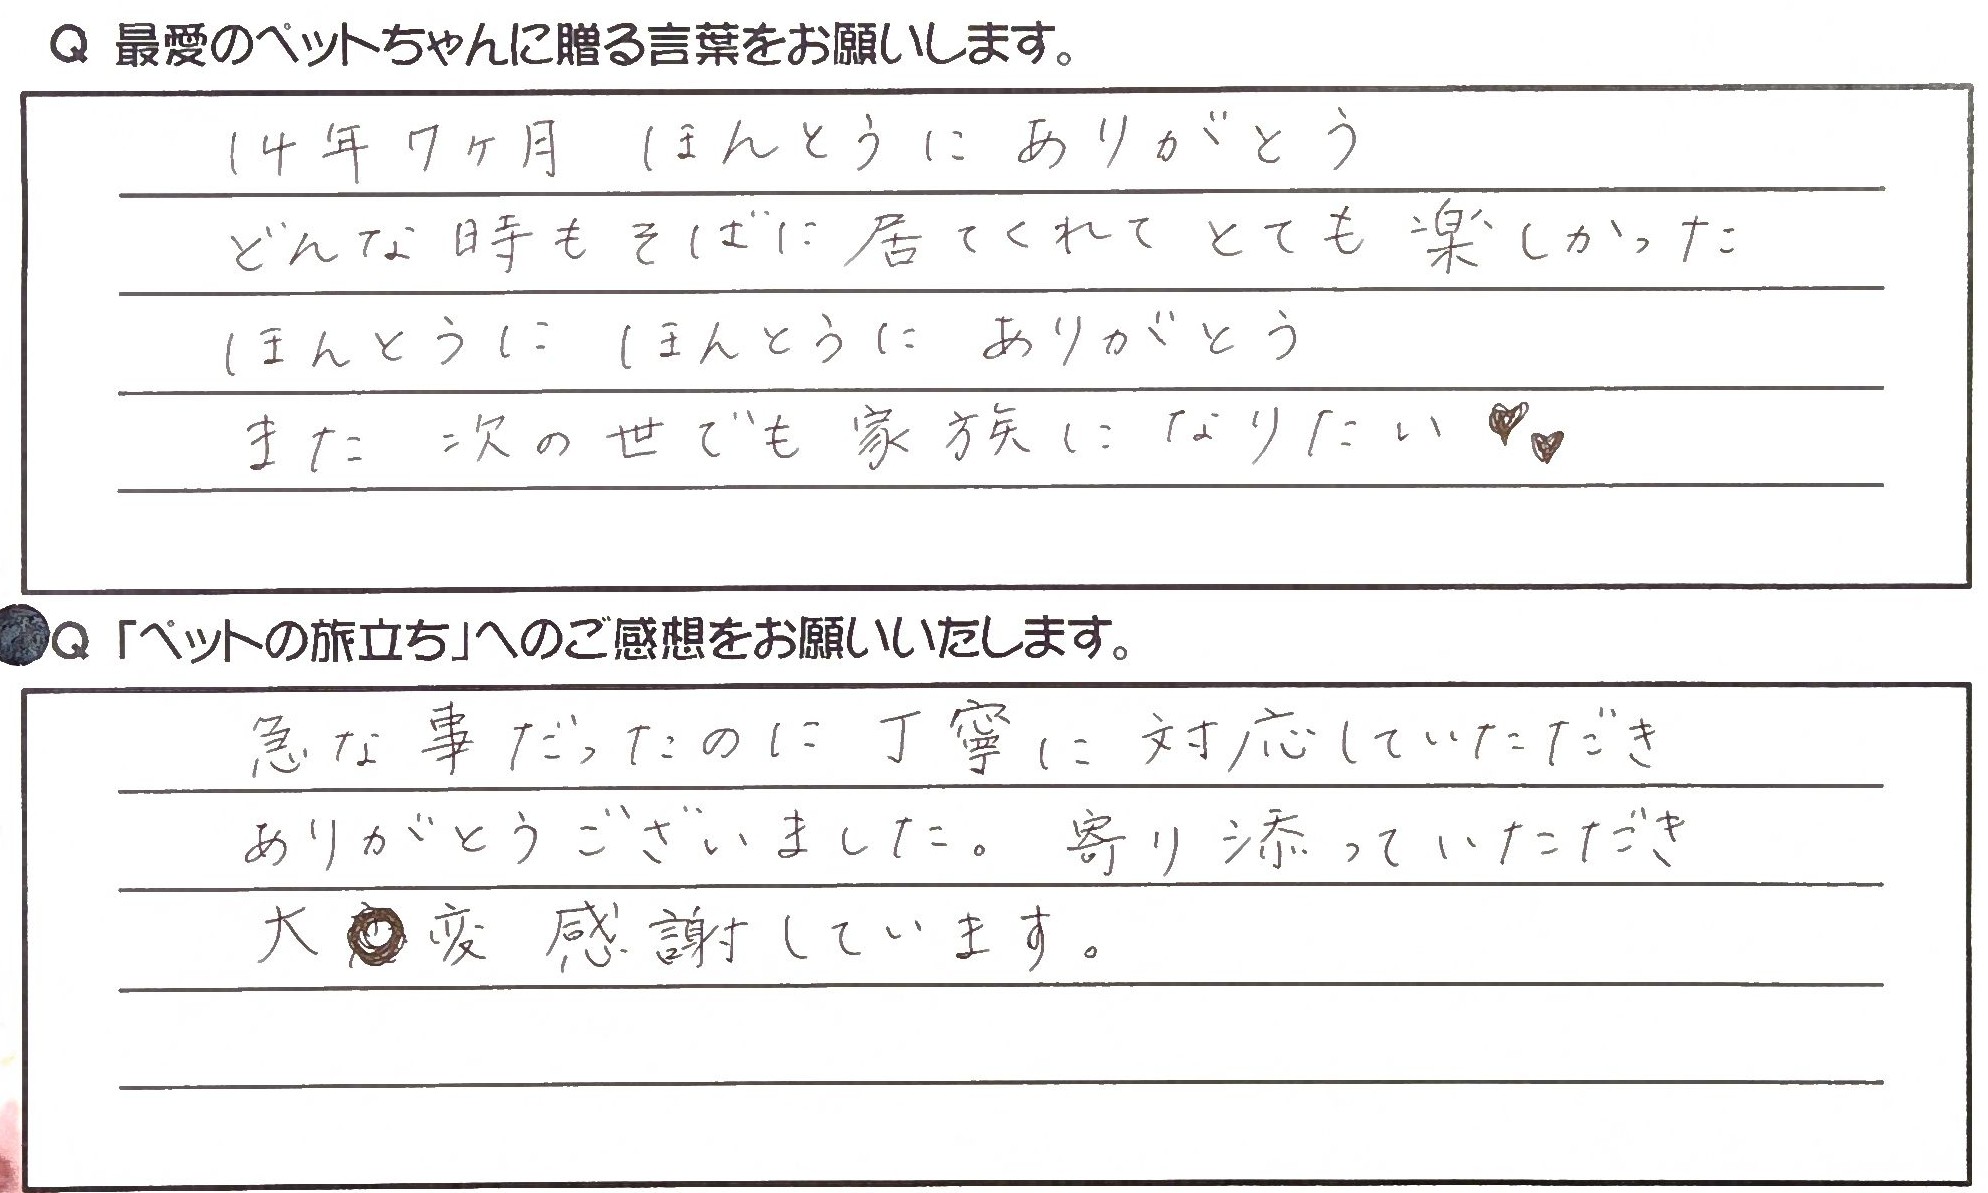 Q 最愛のペットちゃんに贈る言葉をお願いします。
14年7ヶ月 ほんとうに ありがとう
どんな時もそばに居てくれて とても楽しかった
ほんとうに ほんとうに ありがとう
また 次の世でも家族になりたい♥♥
Q 「ペットの旅立ち」へのご感想をお願いいたします。
急な事だったのに丁寧に対応していただき
ありがとうございました。寄り添っていただき
大変 感謝しています。